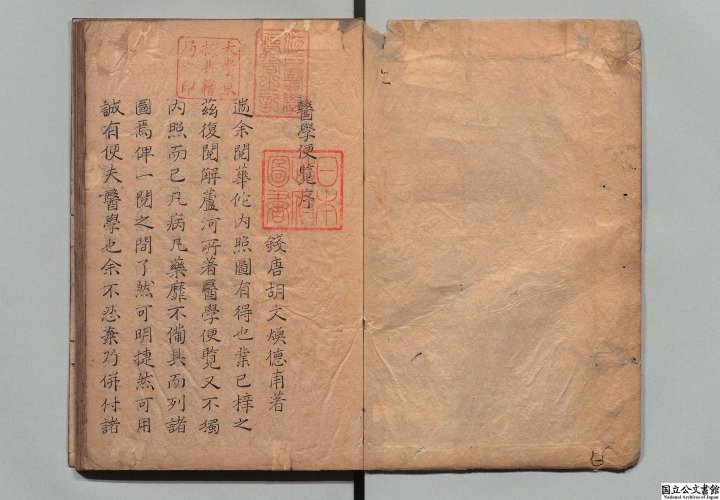 醫學便覽序
錢唐胡文煥德甫著
邇余閱華佗內照圖有得也業已梓之
茲復閱解蘆河所著醫學便覽又不獨
內照而已凡病凡藥靡不備具而列諸
圖焉俾一閱之間了然可明捷然可用
誠有便夫醫學也余不忍棄乃併付諸
日本
政府
圖書
国立公文書館
National Archives of Japan